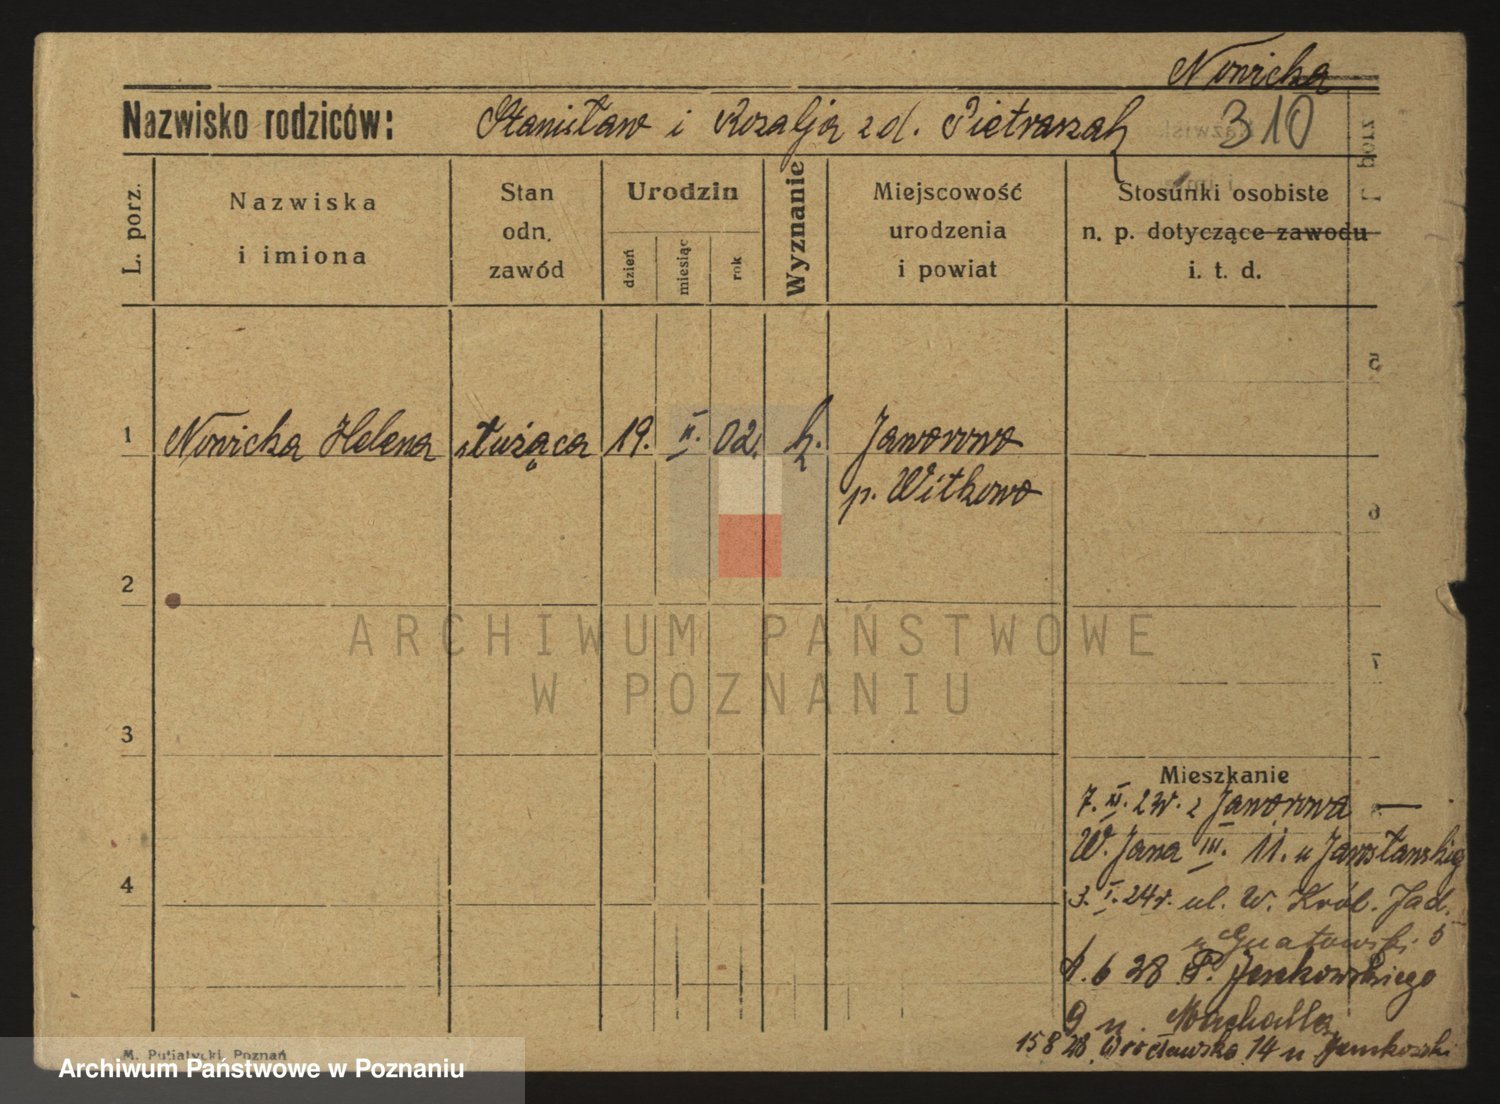 Nowicka
Nazwisko rodziców: Stanisław i Rozalja z d. Pietraszak 310
L. porz.
Nazwiska
i imiona
Stan
odn.
zawód
Urodzin
dzień
miesiąc
rok
Wyznanie
Miejscowość
urodzenia
i powiat
Stosunki osobiste
n. p. dotyczące zawodu
i. t. d.
5
1 Nowicka Helena służąca 19. II. 02. k. Jaworowo
p. Witkowo
6
2
ARCHIWUM PAŃSTWOWE
W POZNANIU
7
3
Mieszkanie
7. XI. 2 z Jaworowa —
W. Jana III. 11. u
4
3. I. 24 r. ul. W. Król. Jad.
u Gnatowski 5
6 28
9 u. Machalla
15 8 28. Wrocławska 14 u
M. Putiatycki, Poznań
Archiwum Państwowe w Poznaniu